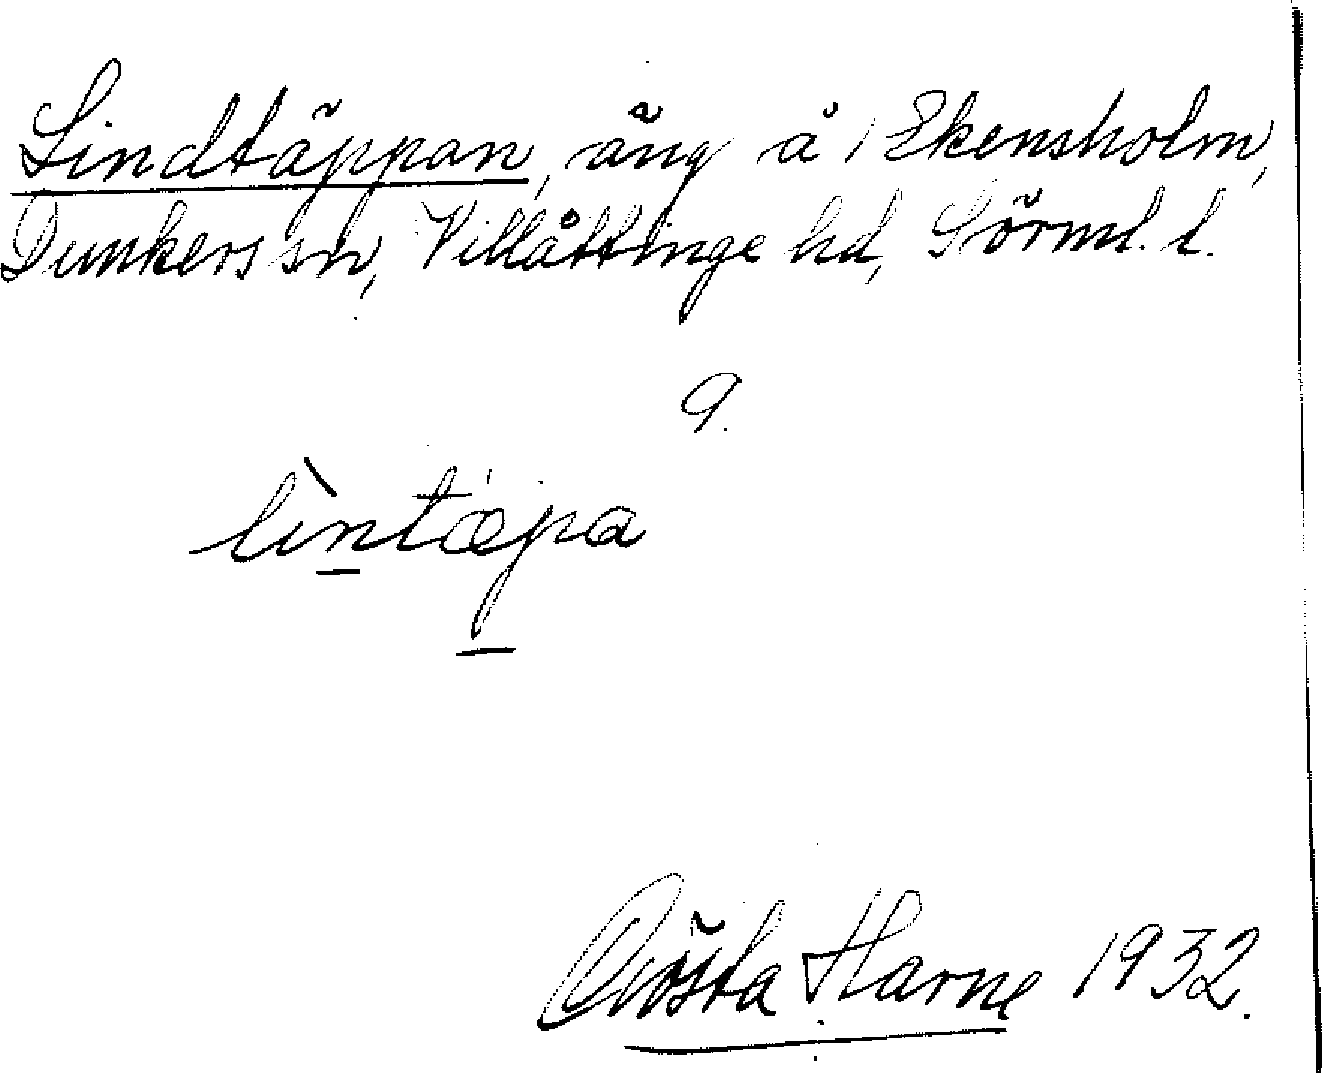 Lindtäppan, äng å Ekensholm,
Dunkers sn, Villåttinge hd, Sörml. l.
9.
lìntæpa
Gösta Harne 1932.